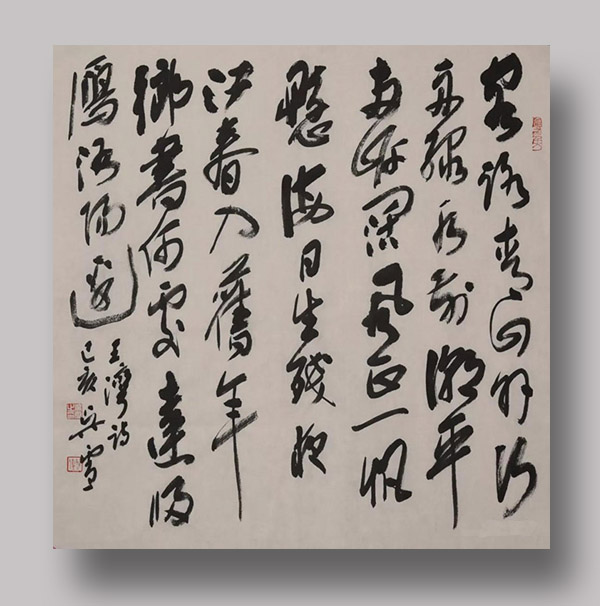 客路青山外行
舟綠水前潮平
兩岸闊風正一帆
懸海日生殘夜
江春入舊年
鄉書何處達歸
鴈洛陽邊
王灣詩
己亥吳雪